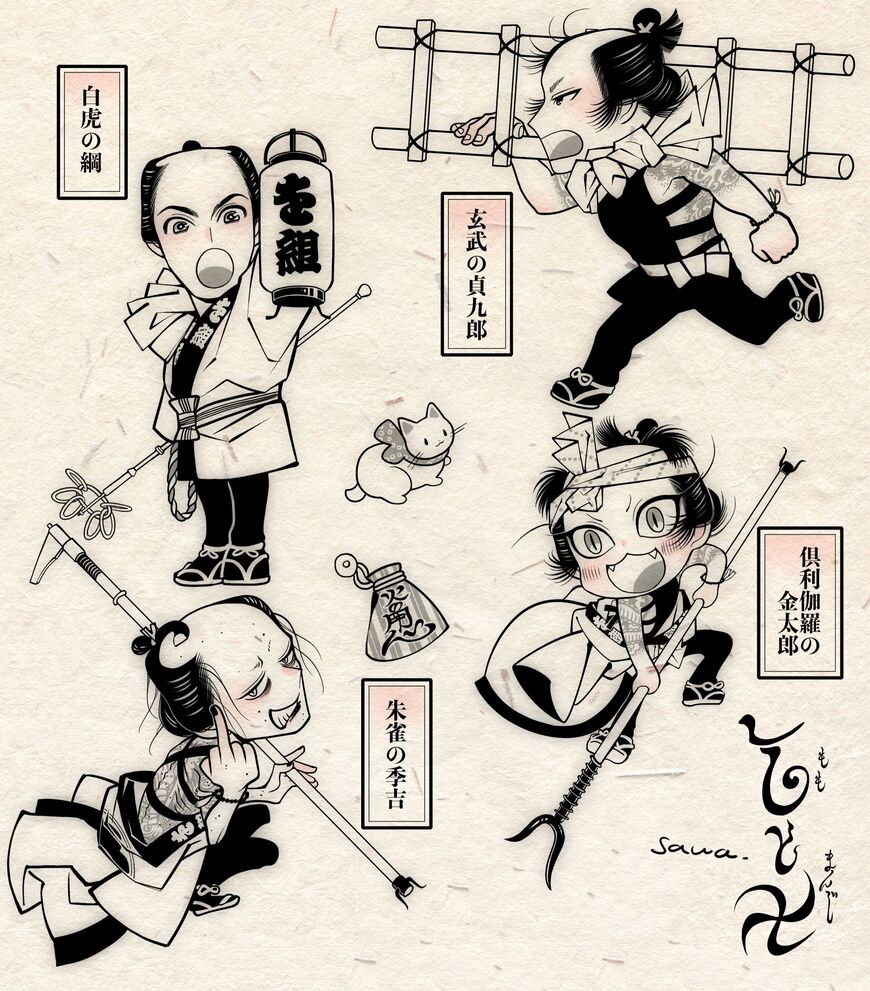 白虎の綱
玄武の貞九郎
を組
を組
火消人
倶利伽羅の
金太郎
朱雀の季吉
もも
まんじ
卍
sawa.